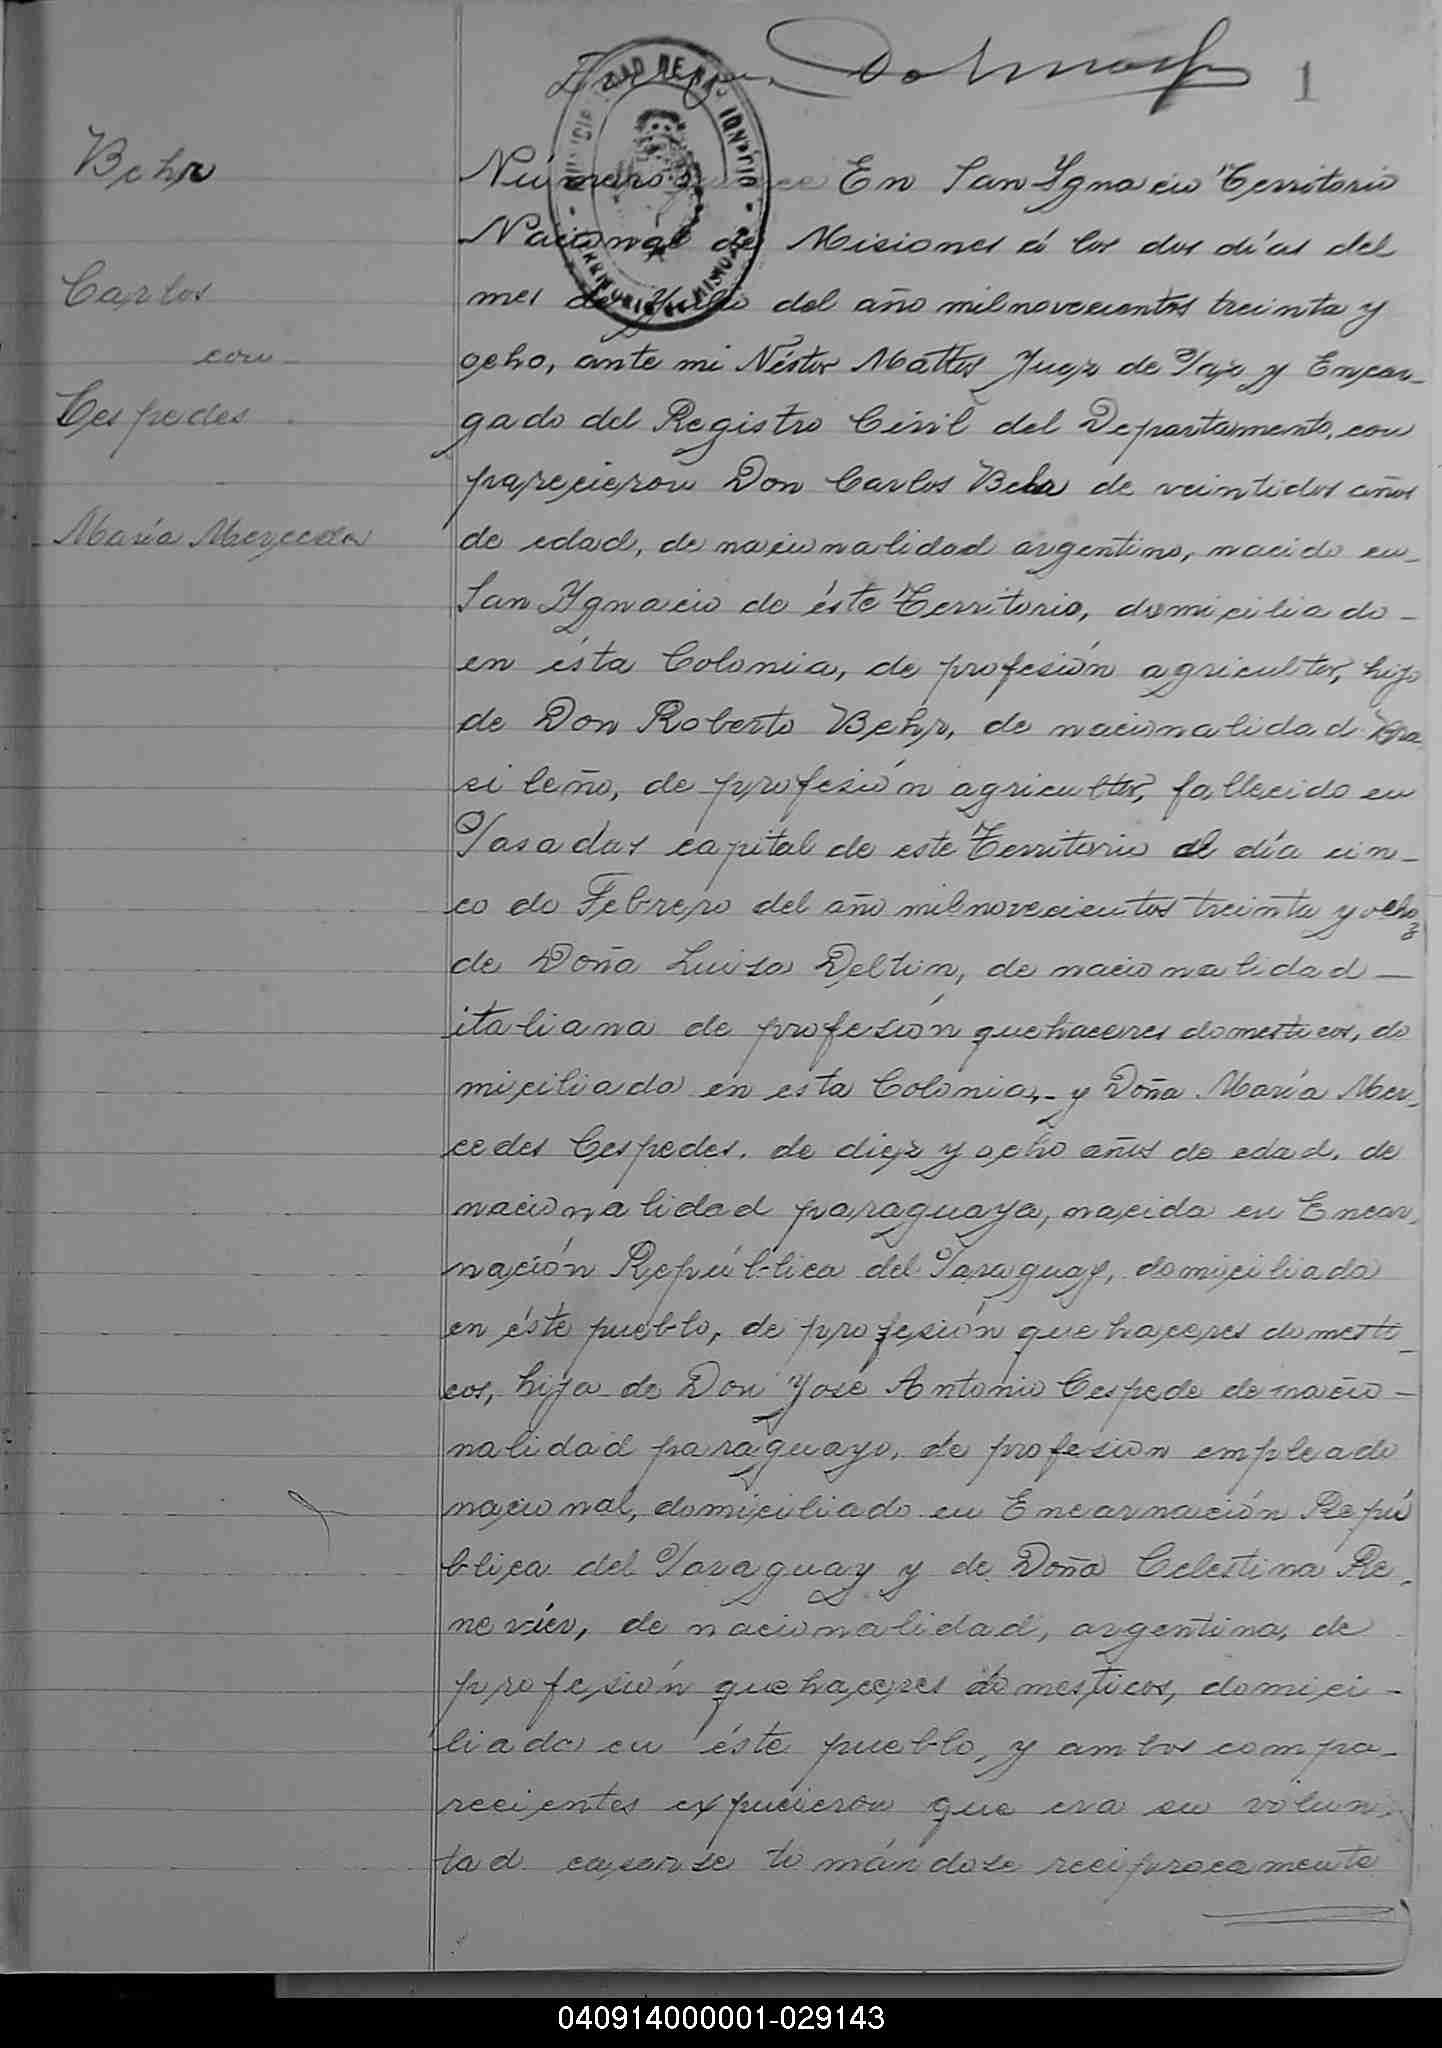 1
MUNICIPALIDAD DE SAN IGNACIO
TERRITORIO DE MISIONES
Behr
Carlos
con
Cespedes
María Mercedes
Número En San Ygnacio Territorio
Nacional de Misiones á los dos días del
mes de Julio del año mil novecientos treinta y
ocho, ante mi Néstor Mattos Juez de Paz y Encar-
gado del Registro Civil del Departamento, con
parecieron Don Carlos Behr de veintidos años
de edad, de nacionalidad argentino, nacido en
San Ygnacio de éste Territorio, domiciliado -
en ésta Colonia, de profesión agricultor, hijo
de Don Roberto Behr, de nacionalidad Bra
sileño, de profesión agricultor, fallecido en
Posadas capital de este Territorio el día cin-
co de Febrero del año mil novecientos treinta y ocho y
de Doña Luisa Deltin, de nacionalidad -
italiana de profesión quehaceres domesticos, do
miciliada en esta Colonia,- y Doña María Mer-
cedes Cespedes, de diez y ocho años de edad, de
nacionalidad paraguaya, nacida en Encar-
nación República del Paraguay, domiciliada
en éste pueblo, de profesión quehaceres domesti-
cos, hija de Don José Antonio Cespede de nacio-
nalidad paraguayo, de profesion empleado
nacional, domiciliado en Encarnación Repú
blica del Paraguay y de Doña Celestina Re-
nevier, de nacionalidad, argentina, de
profesión quehaceres domesticos, domici-
liada en éste pueblo, y ambos compa-
recientes expucieron que era su volun-
tad casarse tomándose reciprocamente
040914000001-029143